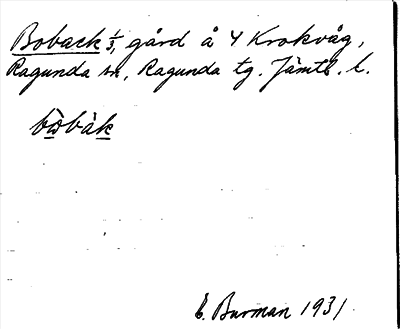 Boback 1/3, gård å 4 Krokvåg,
Ragunda sn, Ragunda tg. Jämtl. l.
bωbàk
E. Burman 1931